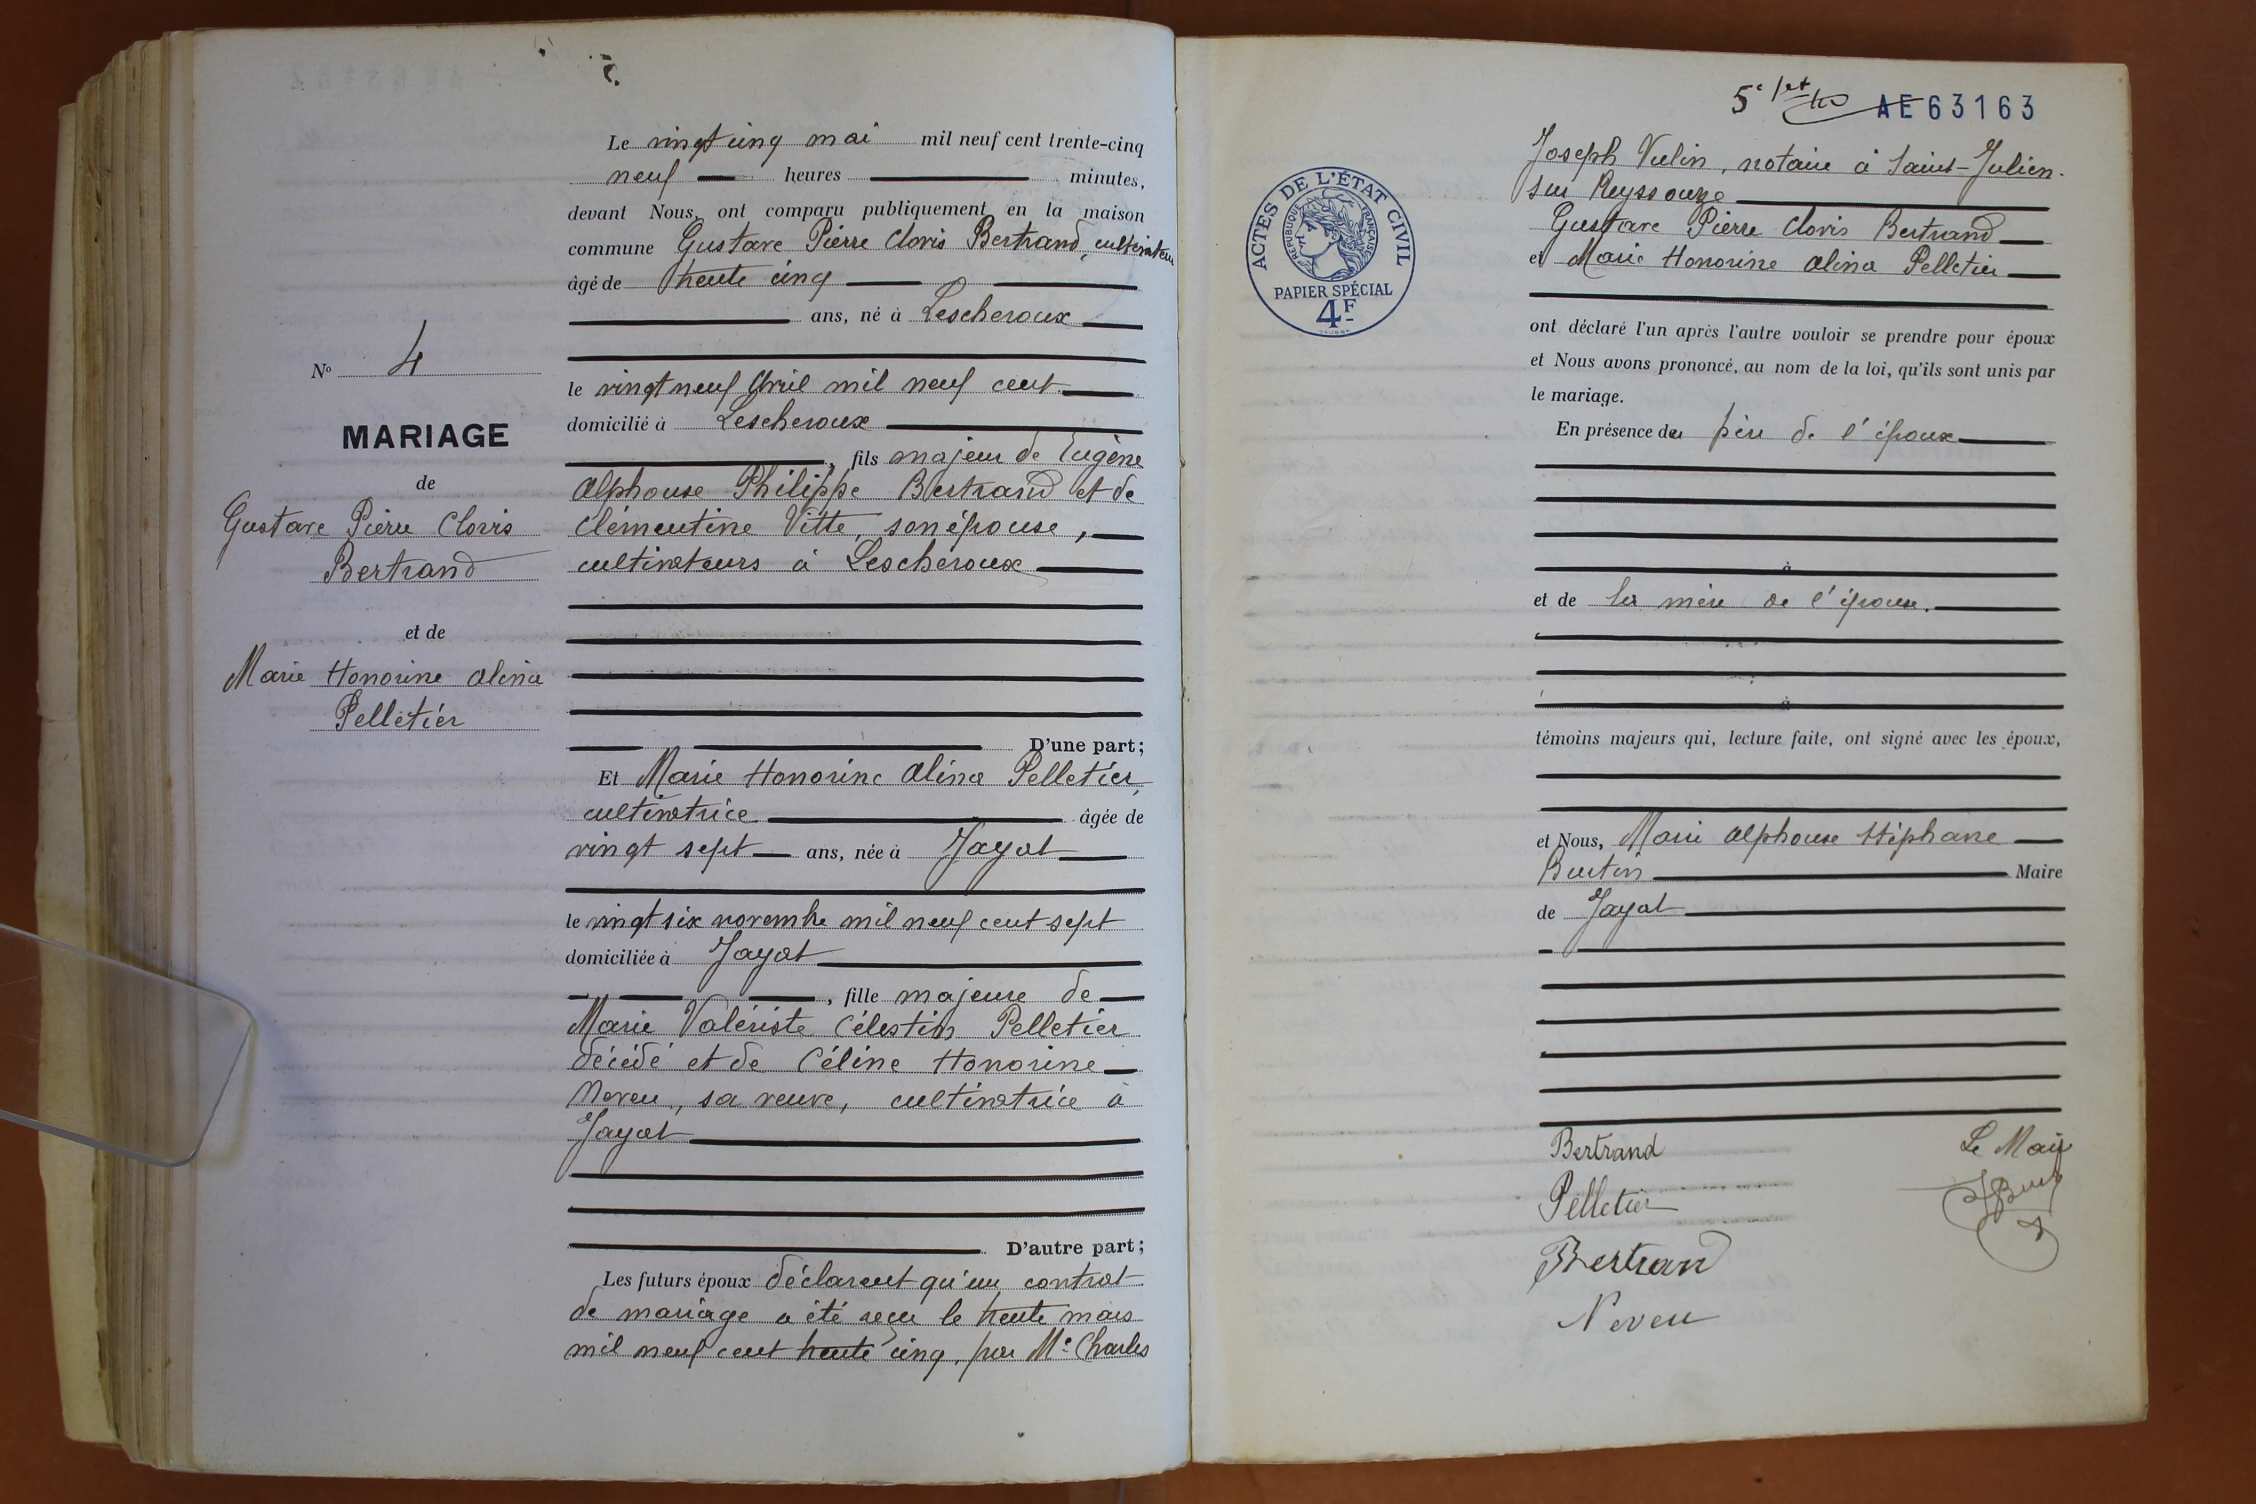 Le vingt cinq mai mil neuf cent trente-cinq
neuf heures minutes,
devant Nous, ont comparu publiquement en la maison
commune Gustave Pierre Clovis Bertrand, cultivateur
âgé de trente cinq
ans, né à Lescheroux
le vingt neuf Avril mil neuf cent
domicilié à Lescheroux
, fils majeur de Eugène
Alphonse Philippe Bertrand et de
Clémentine Vitte, son épouse,
cultivateurs à Lescheroux
D'une part;
Et Marie Honorine Alina Pelletier,
cultivatrice âgée de
vingt sept ans, née à Jayat
le vingt six novembre mil neuf cent sept
domiciliée à Jayat
, fille majeure de
Marie Valériste Célestin Pelletier
décédé et de Céline Honorine
Neveu, sa veuve, cultivatrice à
Jayat
D'autre part;
Les futurs époux déclarent qu'un contrat
de mariage a été reçu le trente mars
mil neuf cent trente cinq, par Me Charles
No 4
MARIAGE
de
Gustave Pierre Clovis
Bertrand
et de
Marie Honorine Alina
Pelletier
5e AE63163
ACTES DE L'ÉTAT CIVIL
RÉPUBLIQUE FRANÇAISE
PAPIER SPÉCIAL
4F
Joseph Vulin, notaire à Saint-Julien-
sur Reyssouze
Gustave Pierre Clovis Bertrand
et Marie Honorine Alina Pelletier
ont déclaré l'un après l'autre vouloir se prendre pour époux
et Nous avons prononcé, au nom de la loi, qu'ils sont unis par
le mariage.
En présence du père de l'époux
à
et de la mère de l'épouse.
à
témoins majeurs qui, lecture faite, ont signé avec les époux,
et Nous, Marie Alphonse Stéphane
Burtin Maire
de Jayat
Bertrand Le Maire
Pelletier
Bertrand
Neveu